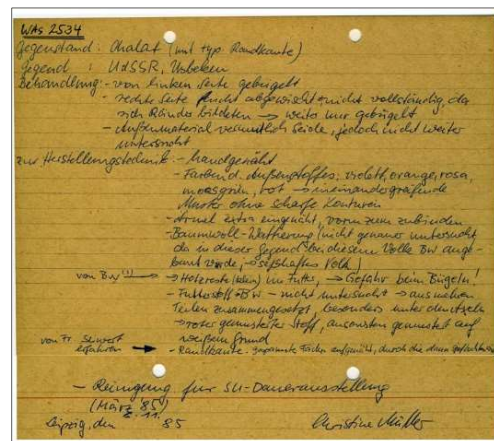 WAs 2534
Gegenstand: Chalat (mit typ. Randkante)
Gegend : UdSSR, Usbeken
Behandlung: - von linken Seite gebügelt
- rechte Seite feucht abgewischt nicht vollständig, da
sich Ränder bildeten → weiter nur gebügelt
- Außenmaterial vermutlich Seide, jedoch nicht weiter
untersucht
zur Herstellungstechnik: - handgenäht
- Farben d. Außenstoffes: violett, orange, rosa,
moosgrün, rot → ineinandergreifende
Muster ohne scharfe Konturen
- Ärmel extra eingenäht, vorn zum zubinden
- Baumwoll-Wattierung (nicht genauer untersucht
da in dieser Gegend bei diesem Volke Bw ange-
baut wurde, → seßhaftes Volk)
von Bw → Holzreste im Futter, → Gefahr beim Bügeln!
- Futterstoff Bw - nicht untersucht → aus mehren
Teilen zusammengesetzt, besonders unter den Achseln
→ roter gemusterter Stoff, ansonsten gemustert auf
weißem Grund
von Fr. erfahren → - Randkante: gespannte Fäden aufgenäht, durch die dann
- Reinigung für SU-Dauerausstellung
(März 85)
Leipzig, den 8.11.85 Christine Müller